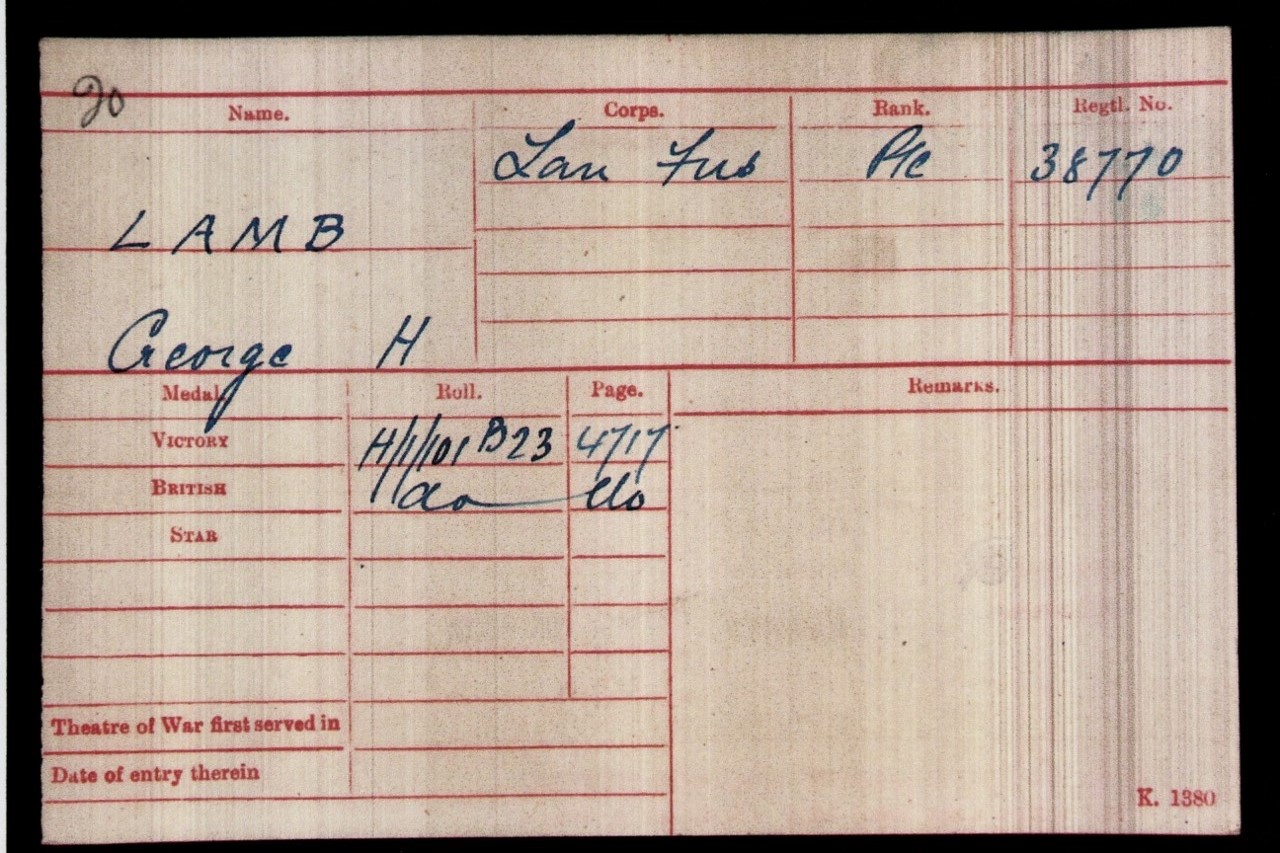 Name. Corps. Rank. Regtl. No.
Lan Fus Pte 38770
LAMB
George H
Medal. Roll. Page. Remarks.
VICTORY H/1/101 B23 4717
BRITISH do do
STAR
Theatre of War first served in
Date of entry therein
K. 1380